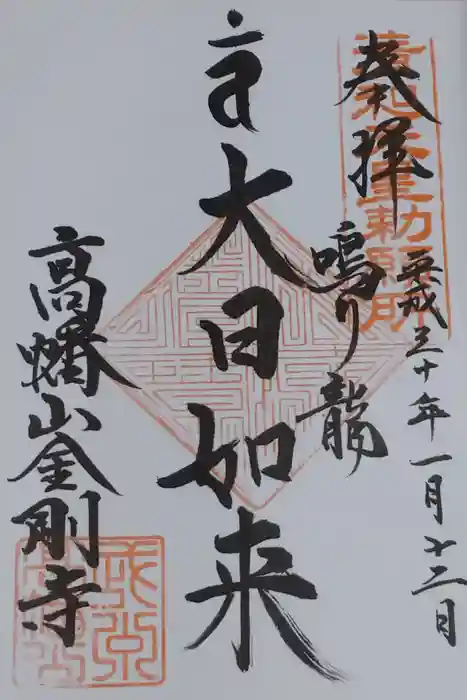 奉拝
平成三十年一月十二日
鳴り龍
大日如来
高幡山金剛寺